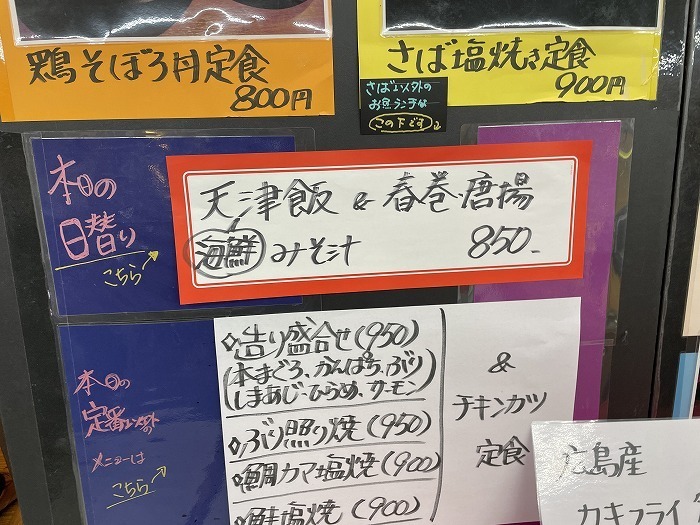 鶏そぼろ丼定食
800円
さば塩焼き定食
900円
さば以外の
お昼ランチは
この下です
本日の
日替り
こちら
天津飯 & 春巻・唐揚
海鮮みそ汁 850.-
本日の
定番以外の
メニューは
こちら
◇造り盛合せ(950)
(本まぐろ、かんぱち、ぶり
しまあじ・ひらめ、サーモン)
◇ぶり照り焼(950)
◇鯛カマ塩焼(900)
◇鮭塩焼(900)
&
チキンカツ
定食
広島産
カキフライ